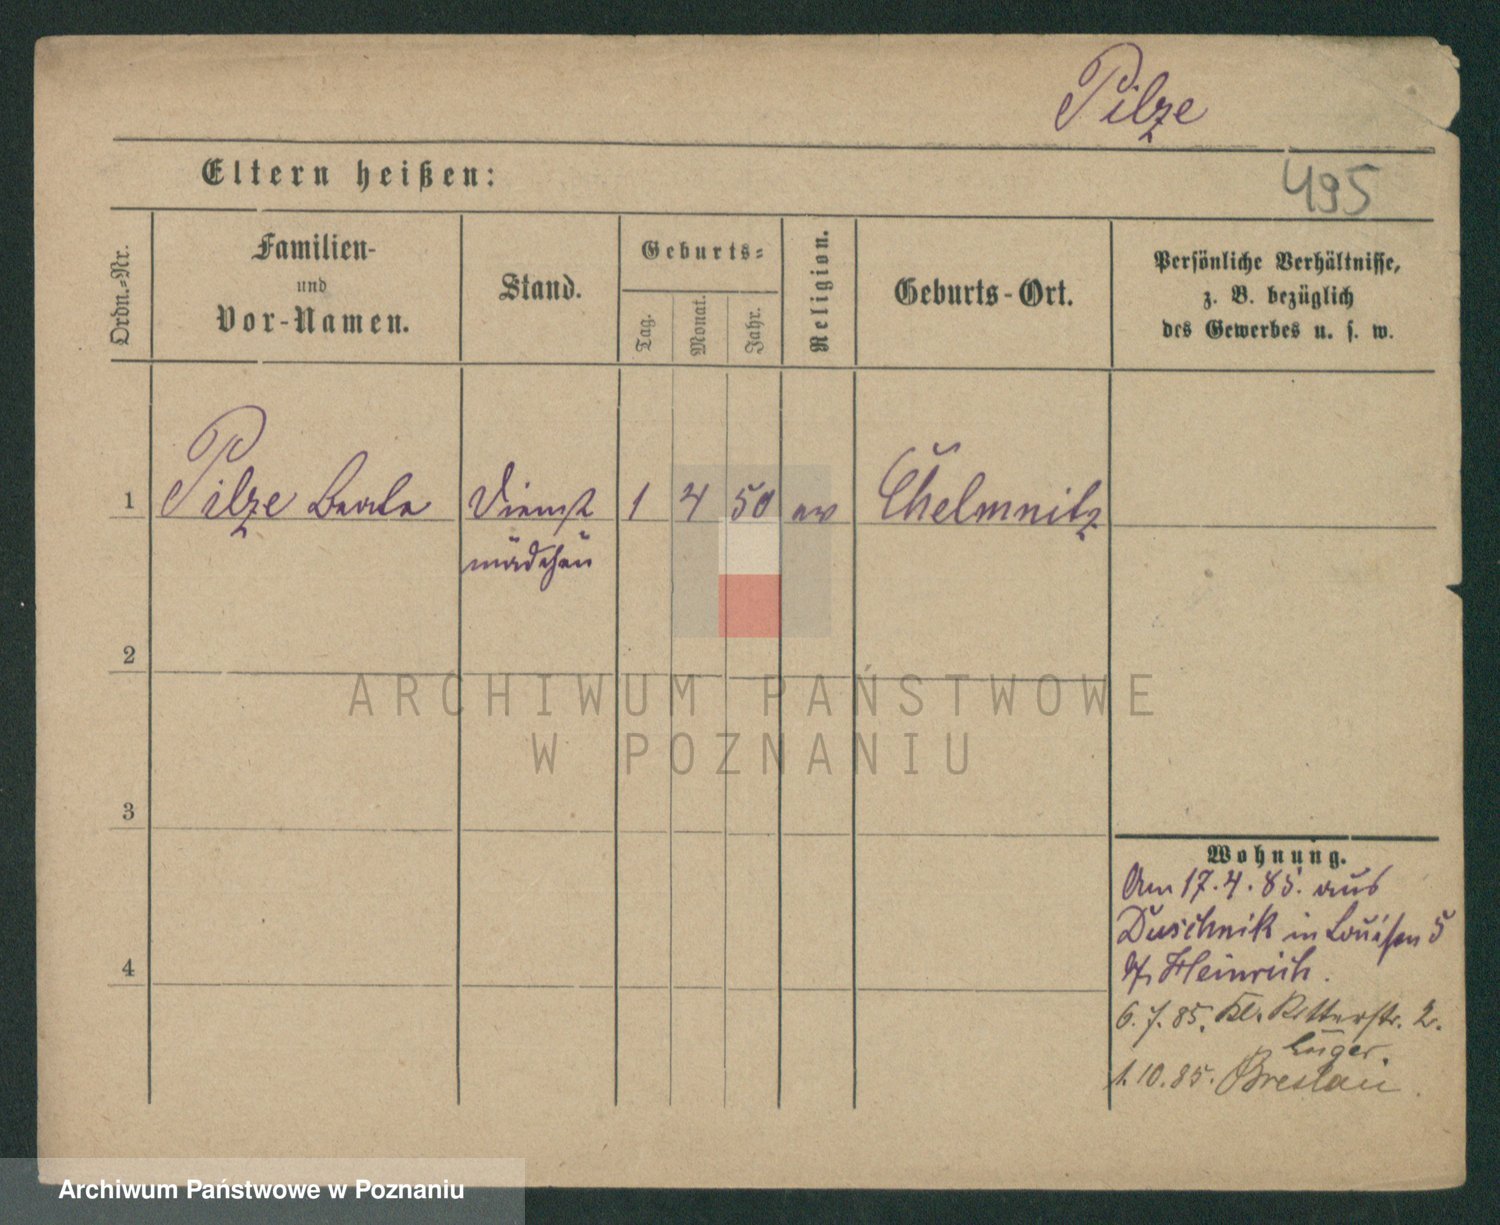 Pilze
Eltern heißen:
495
Ordn.-Nr.
Familien-
und
Vor-Namen.
Stand.
Geburts-
Tag.
Monat.
Jahr.
Religion.
Geburts-Ort.
Persönliche Verhältnisse,
z. B. bezüglich
des Gewerbes u. s. w.
1 Pilze Beate Dienst 1 4 50 ev Chelmnitz
mädchen
2
3
4
ARCHIWUM PAŃSTWOWE
W POZNANIU
Wohnung.
Am 17.4.85. aus
Duschnik in Louisen 5
Heinrich.
6.7.85. Kl. Ritterstr. 2.
1.10.85. Breslau
Archiwum Państwowe w Poznaniu